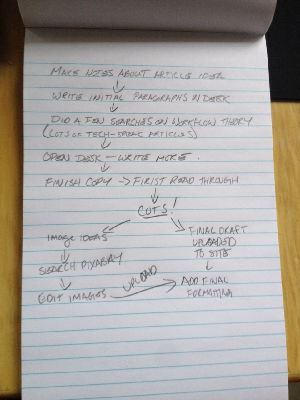 MAKE NOTES ABOUT ARTICLE IDEA
WRITE INITIAL PARAGRAPHS IN DESK
DID A FEW SEARCHES ON WORKFLOW THEORY
(LOTS OF TECH-SPEAK ARTICLES)
OPEN DESK - WRITE MORE.
FINISH COPY → FIRST READ THROUGH
CUTS!
IMAGE IDEAS
SEARCH PIXABAY
EDIT IMAGES
UPLOAD
FINAL DRAFT
UPLOADED
TO SITE
ADD FINAL
FORMATTING